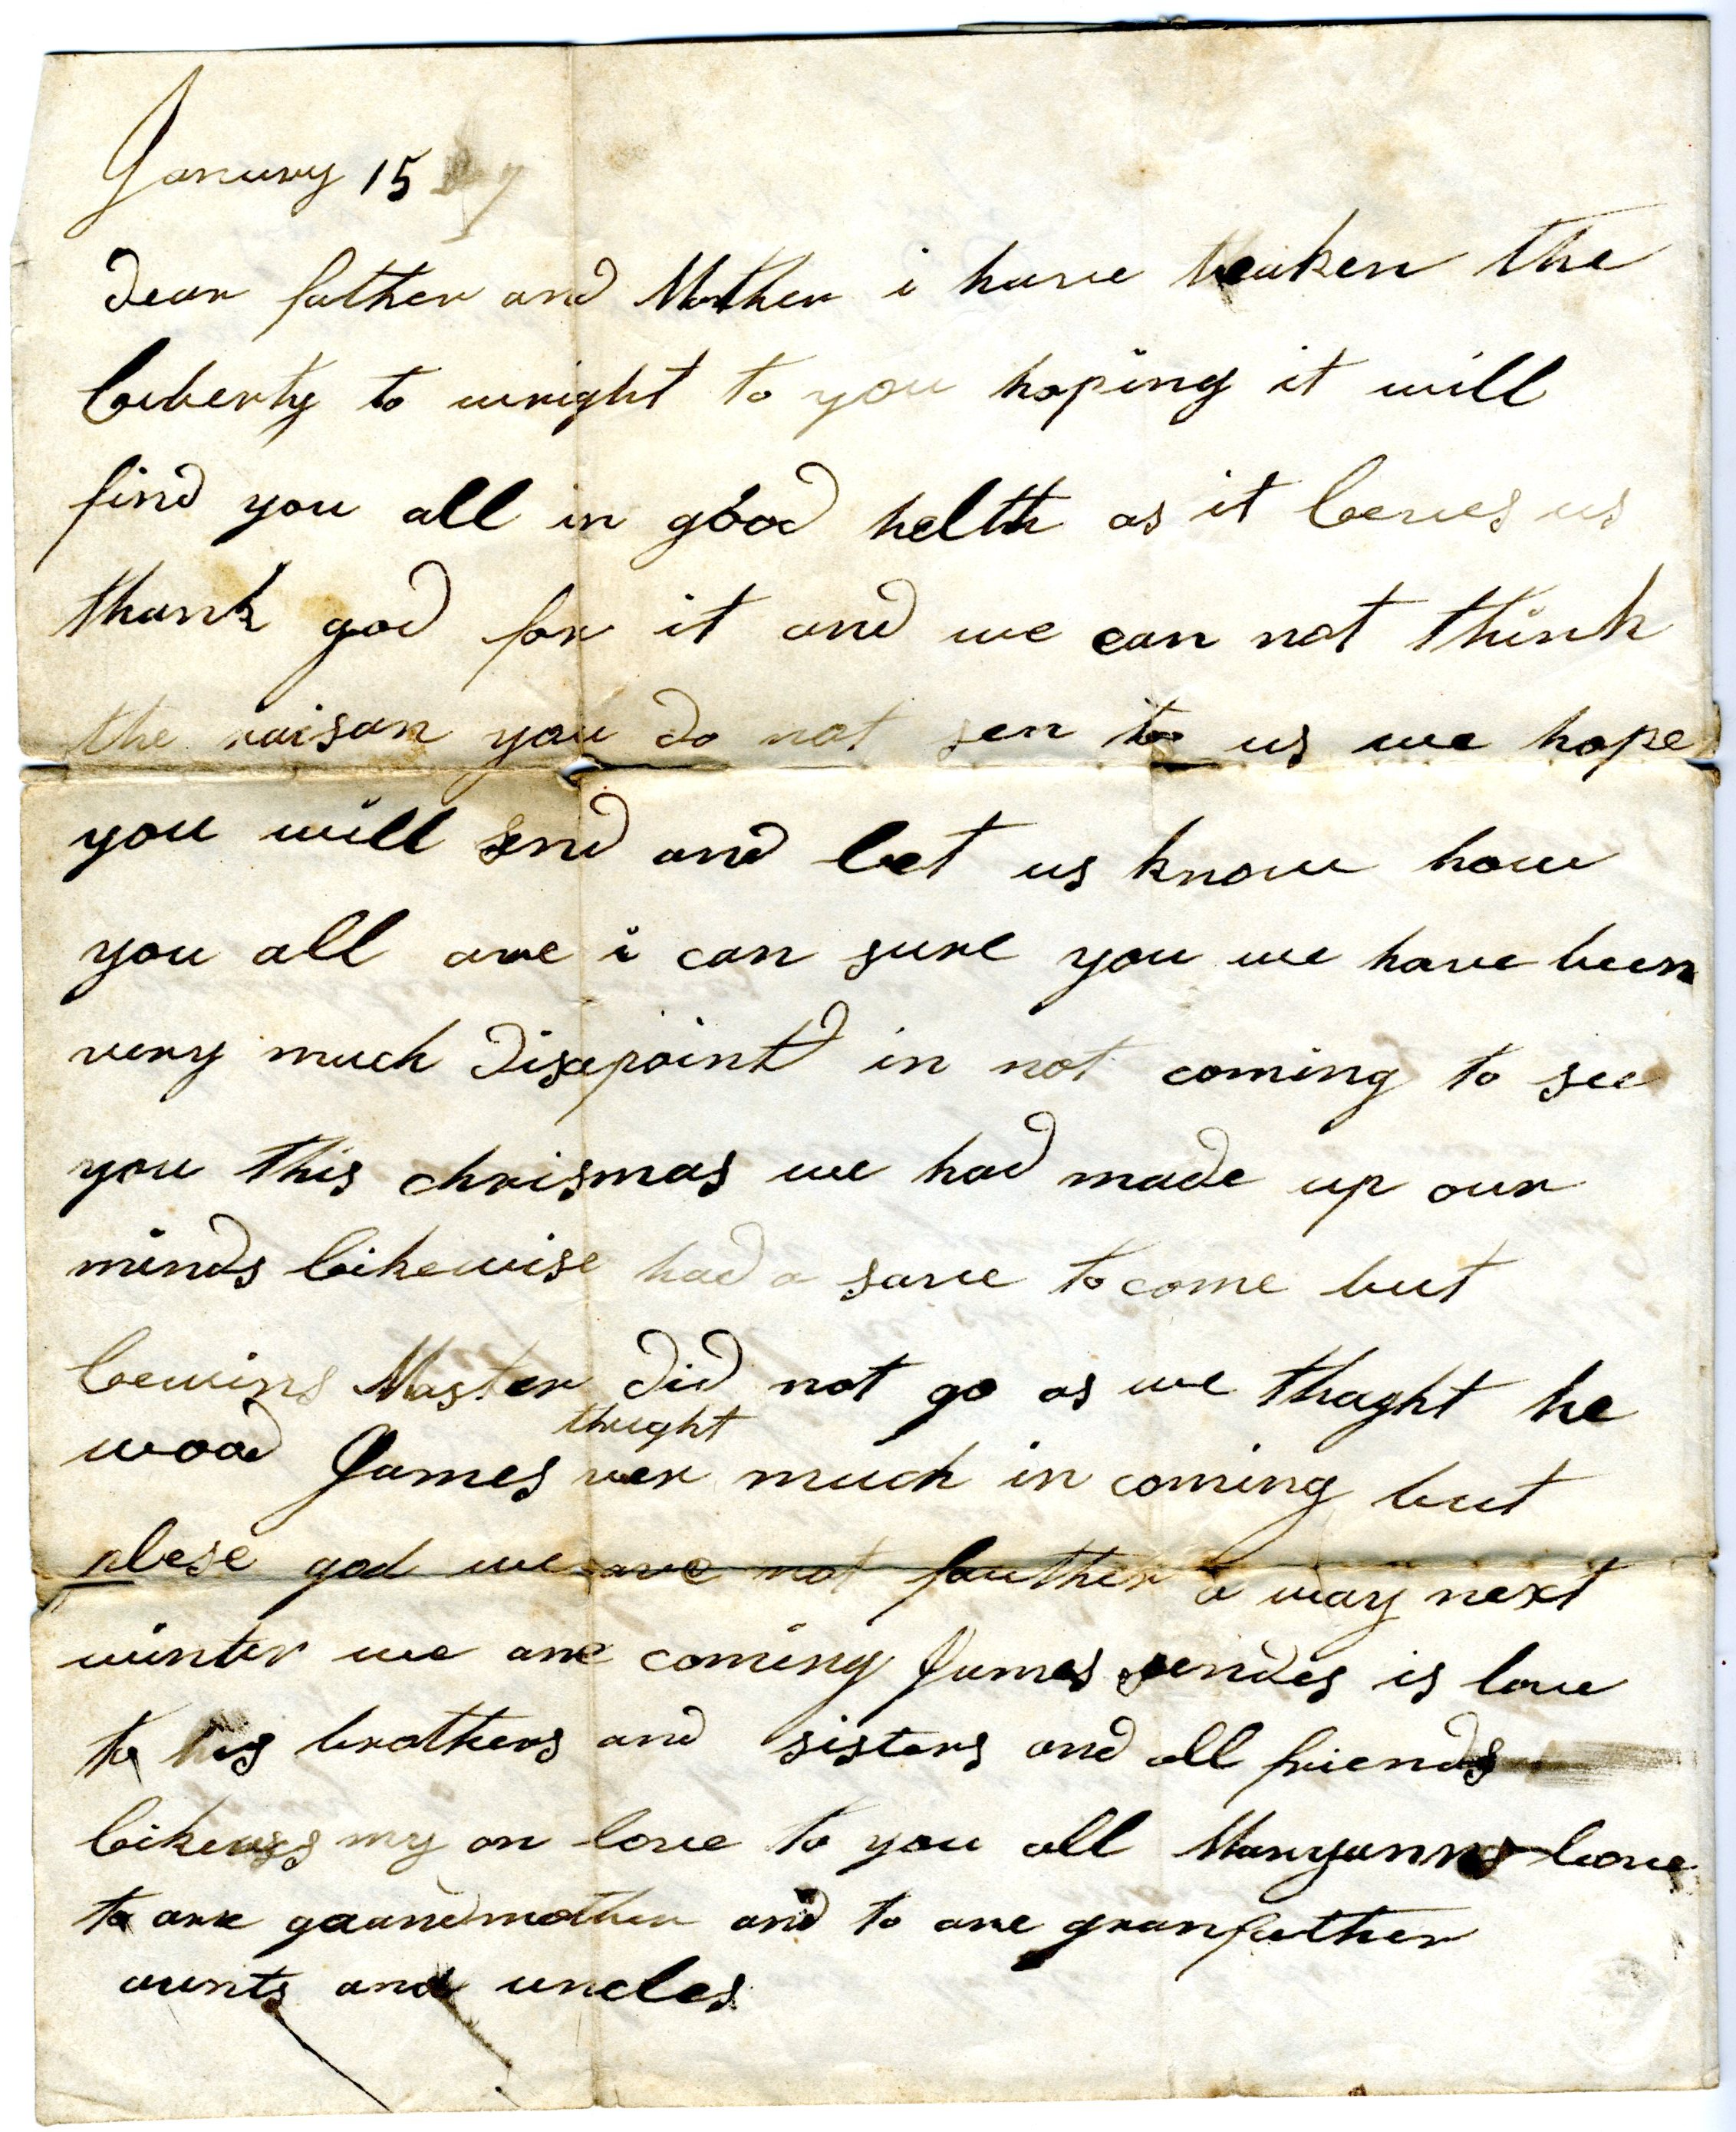 January 15
dear father and Mother i have teaken the
liberty to wright to you hoping it will
find you all in good helth as it leves us
thank god for it and we can not think
the raison you do not sen to us we hope
you will send and let us know how
you all are i can sure you we have been
very much disapointd in not coming to see
you this chrismas we had made up our
minds likewise had a save to come but
Master did not go as we thaght he
thught
wood James ver much in coming but
plese god we are not fauther a way next
winter we are coming James sendes is love
to his brothers and sisters and all friends
my on love to you all Maryanns love
to are graandmother and to are granfather
aunts and uncles